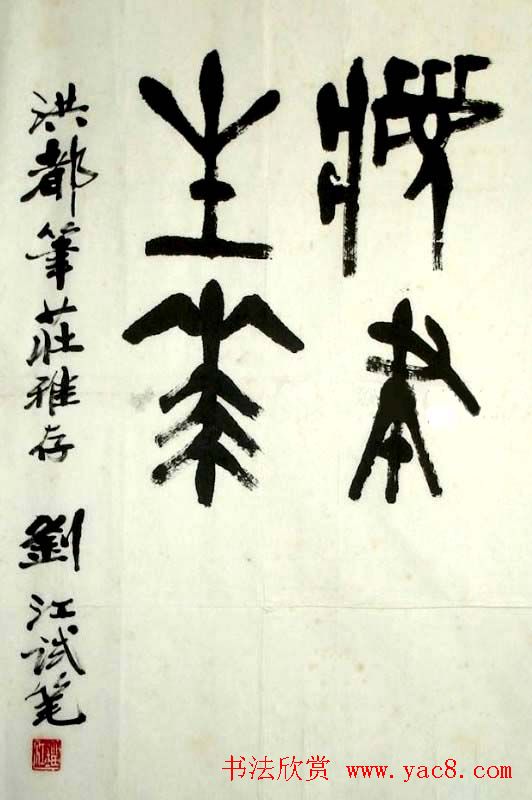 夢筆
生華
洪都筆莊雅存 劉江试笔
书法欣赏 www.yac8.com